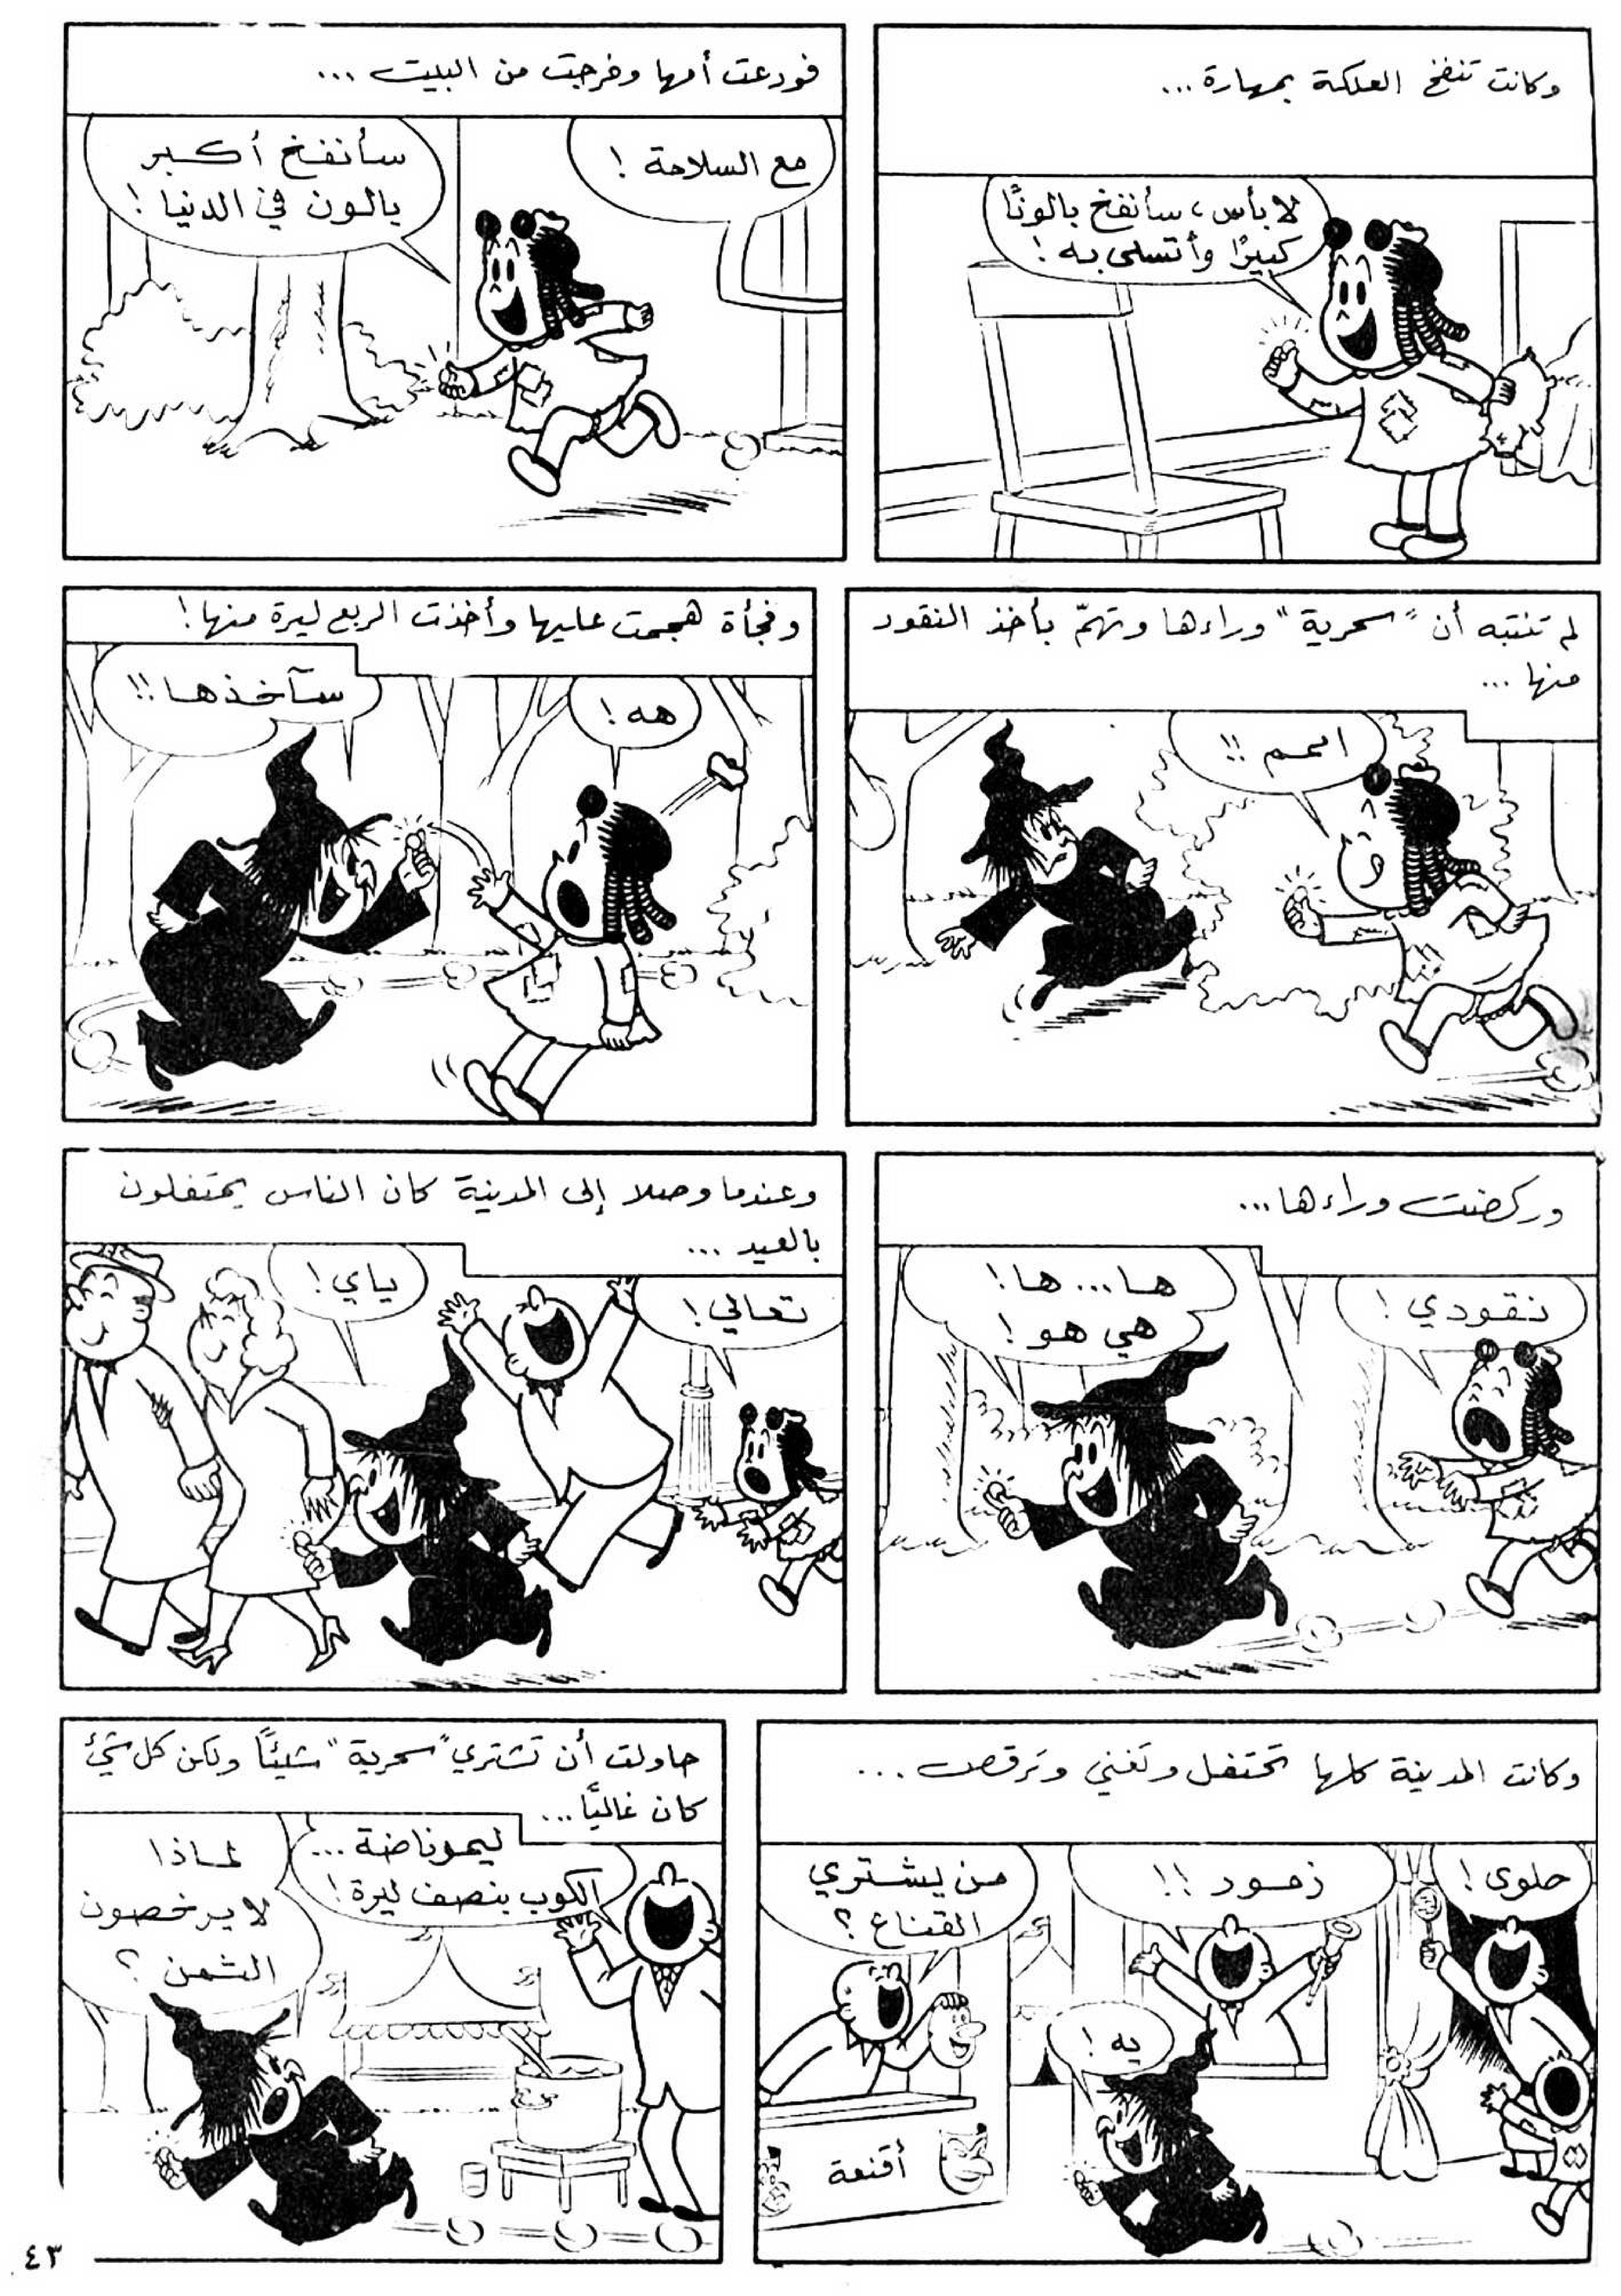 وكانت تنفخ العلكة بمهارة...
لا بأس، سأنفخ بالونًا
كبيرًا وأتسلى به!
فودعت أمها وخرجت من البيت...
مع السلامة!
سأنفخ أكبر
بالون في الدنيا!
لم تنتبه أن "سحرية" وراءها وتهمّ بأخذ النقود
منها...
امم!!
وفجأة هجمت عليها وأخذت الربع ليرة منها!
هه!
سآخذها!!
وركضت وراءها...
نقودي!
ها... ها!
هي هو!
وعندما وصلا إلى المدينة كان الناس يحتفلون
بالعيد...
تعالي!
ياي!
وكانت المدينة كلها تحتفل وتغني وترقص...
حلوى!
زمور!!
من يشتري
القناع؟
يه!
أقنعة
حاولت أن تشتري "سحرية" شيئًا ولكن كل شيء
كان غاليًا...
ليموناضة...
الكوب بنصف ليرة!
لماذا
لا يرخصون
الثمن؟
٤٣